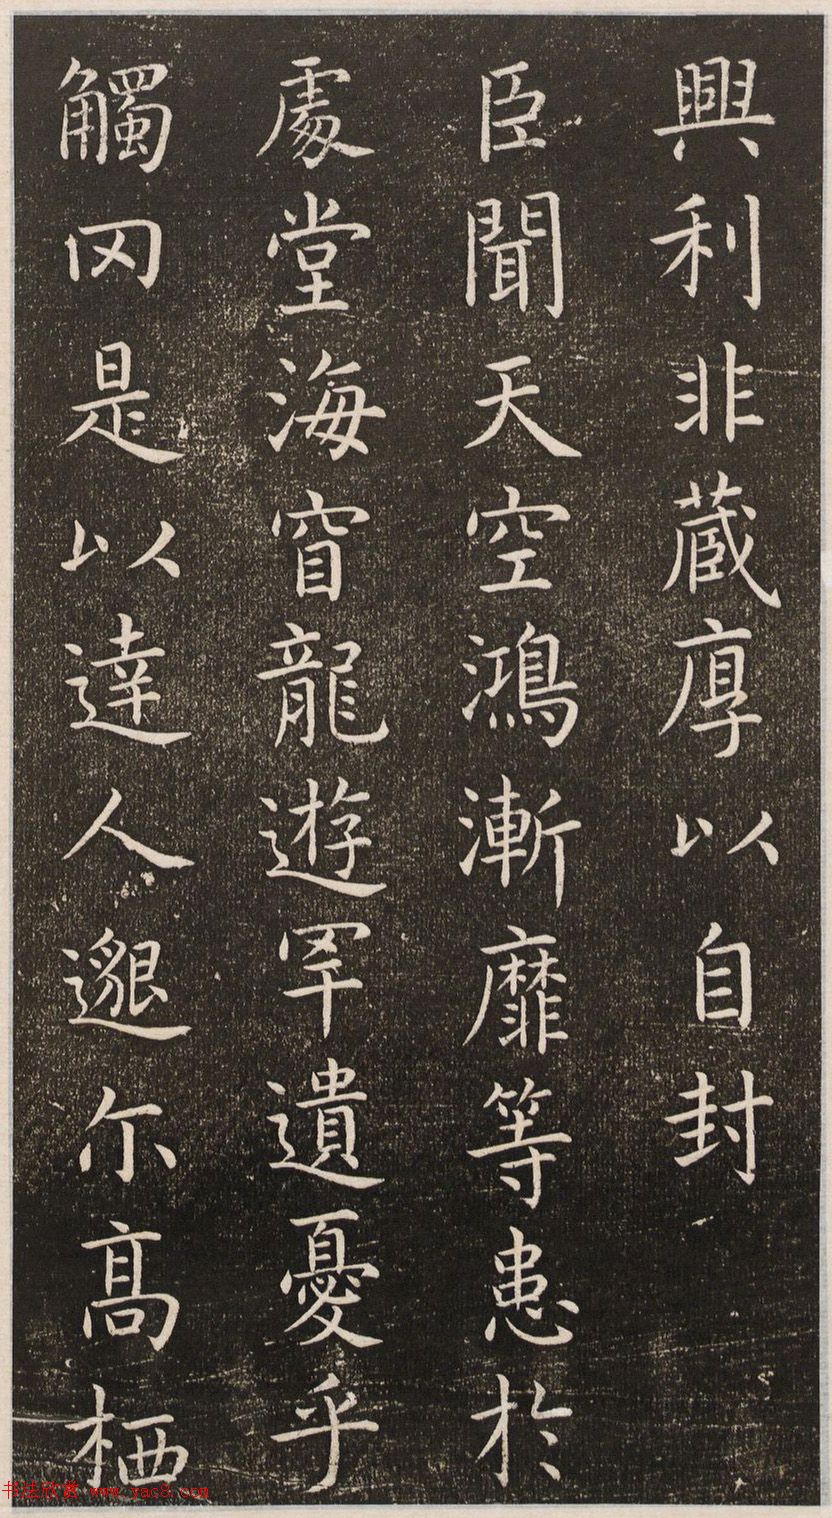 興利非藏厚以自封
臣聞天空鴻漸靡等患於
處堂海窅龍遊罕遺憂乎
觸冈是以達人邈尔高栖
书法欣赏 www.yac8.com